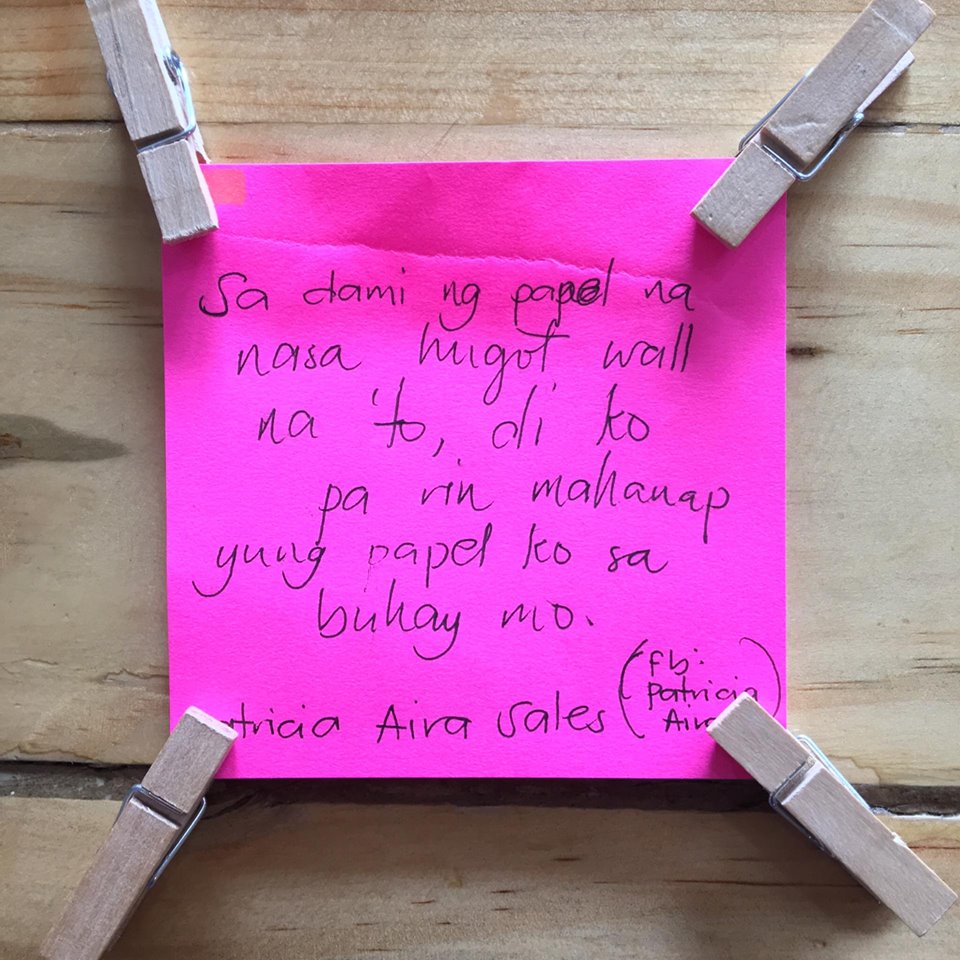 Sa dami ng papel na
nasa hugot wall
na 'to, di ko
pa rin mahanap
yung papel ko sa
buhay mo.
(fb:
patricia
Aira
atricia Aira Sales